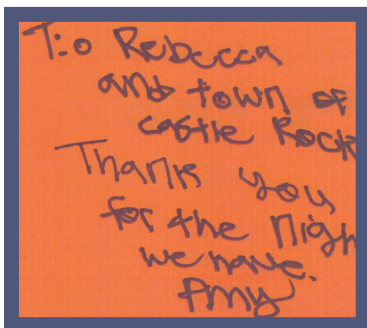 T:o Rebecca
and town of
castle Rock
Thank you
for the nigh
we have.
Amy